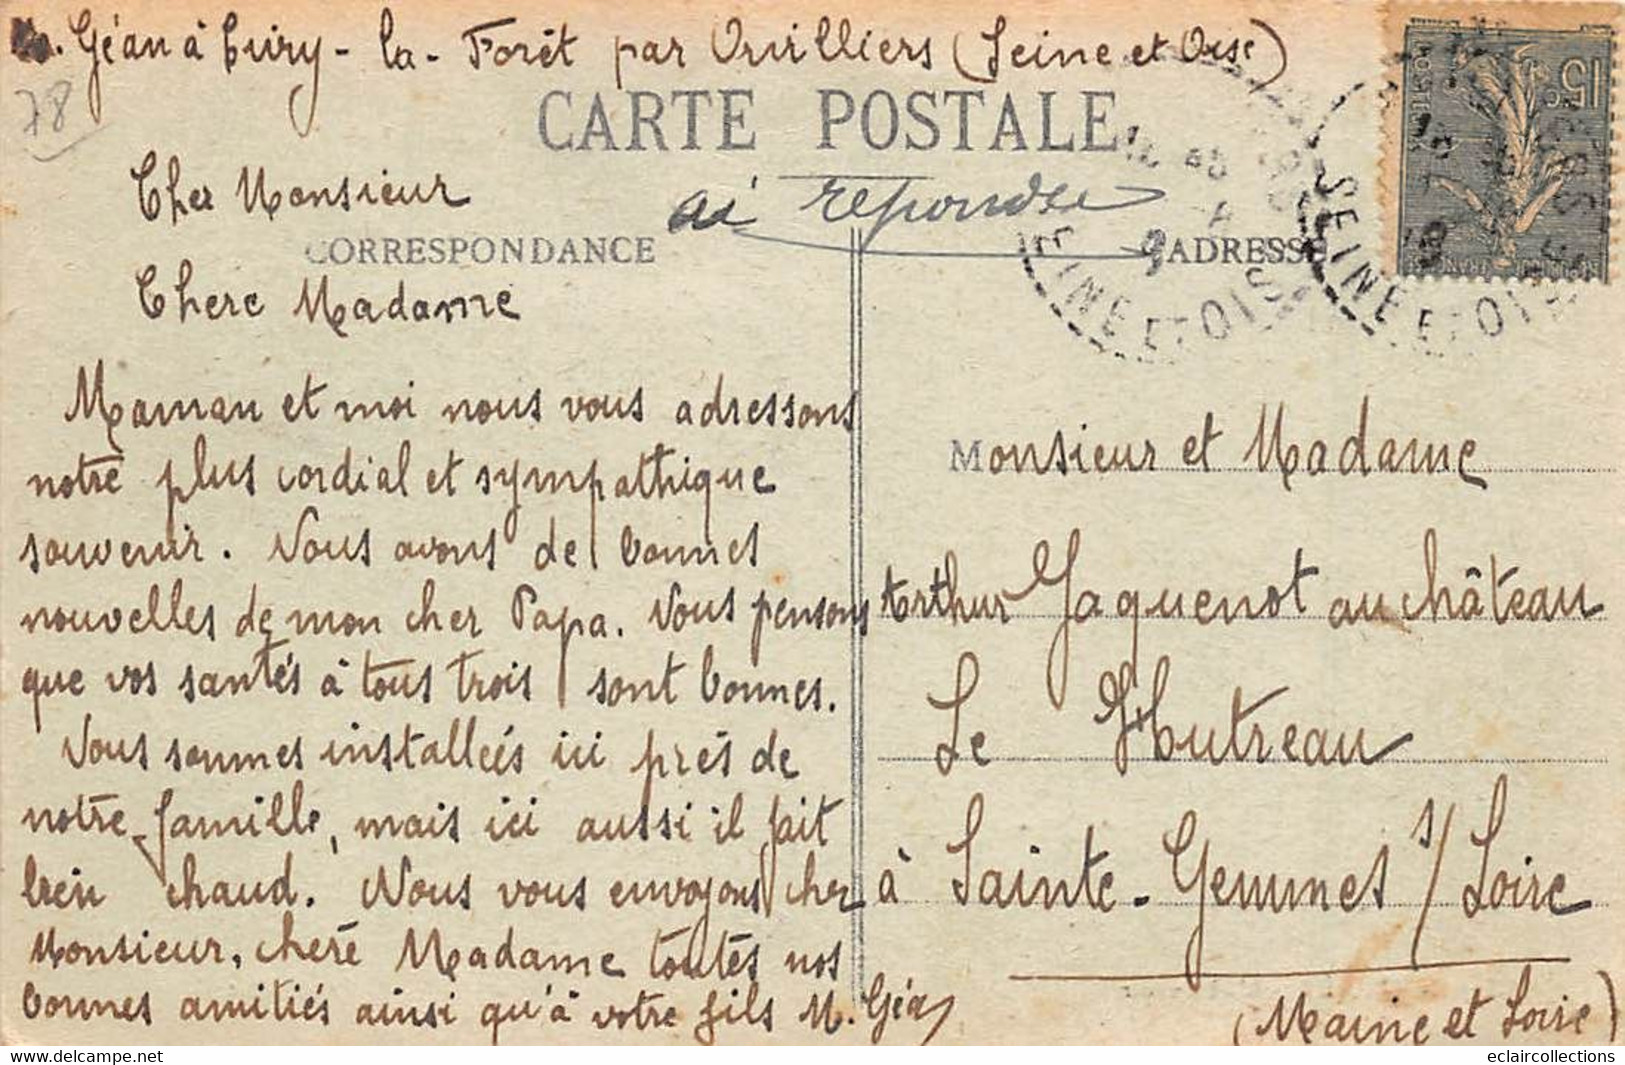 M. Géan à Civry-la-Forêt par Orvilliers (Seine et Oise)
78
CARTE POSTALE
ai repondre
CORRESPONDANCE
ADRESSE
Cher Monsieur
Chere Madame
Maman et moi nous vous adressons
notre plus cordial et sympathique
souvenir. Nous avons de bonnes
nouvelles de mon cher Papa. Nous pensons
que vos santés à tous trois sont bonnes.
Nous sommes installées ici près de
notre famille, mais ici aussi il fait
bien chaud. Nous vous envoyons cher
Monsieur, chere Madame toutes nos
bonnes amitiés ainsi qu'à votre fils M. Géan
Monsieur et Madame
Arthur Jaquenot au château
Le Hutreau
à Sainte-Gemmes s/ Loire
(Maine et Loire)
15c
POSTES
SEINE ET OISE
SEINE ET OISE
eclaircollections